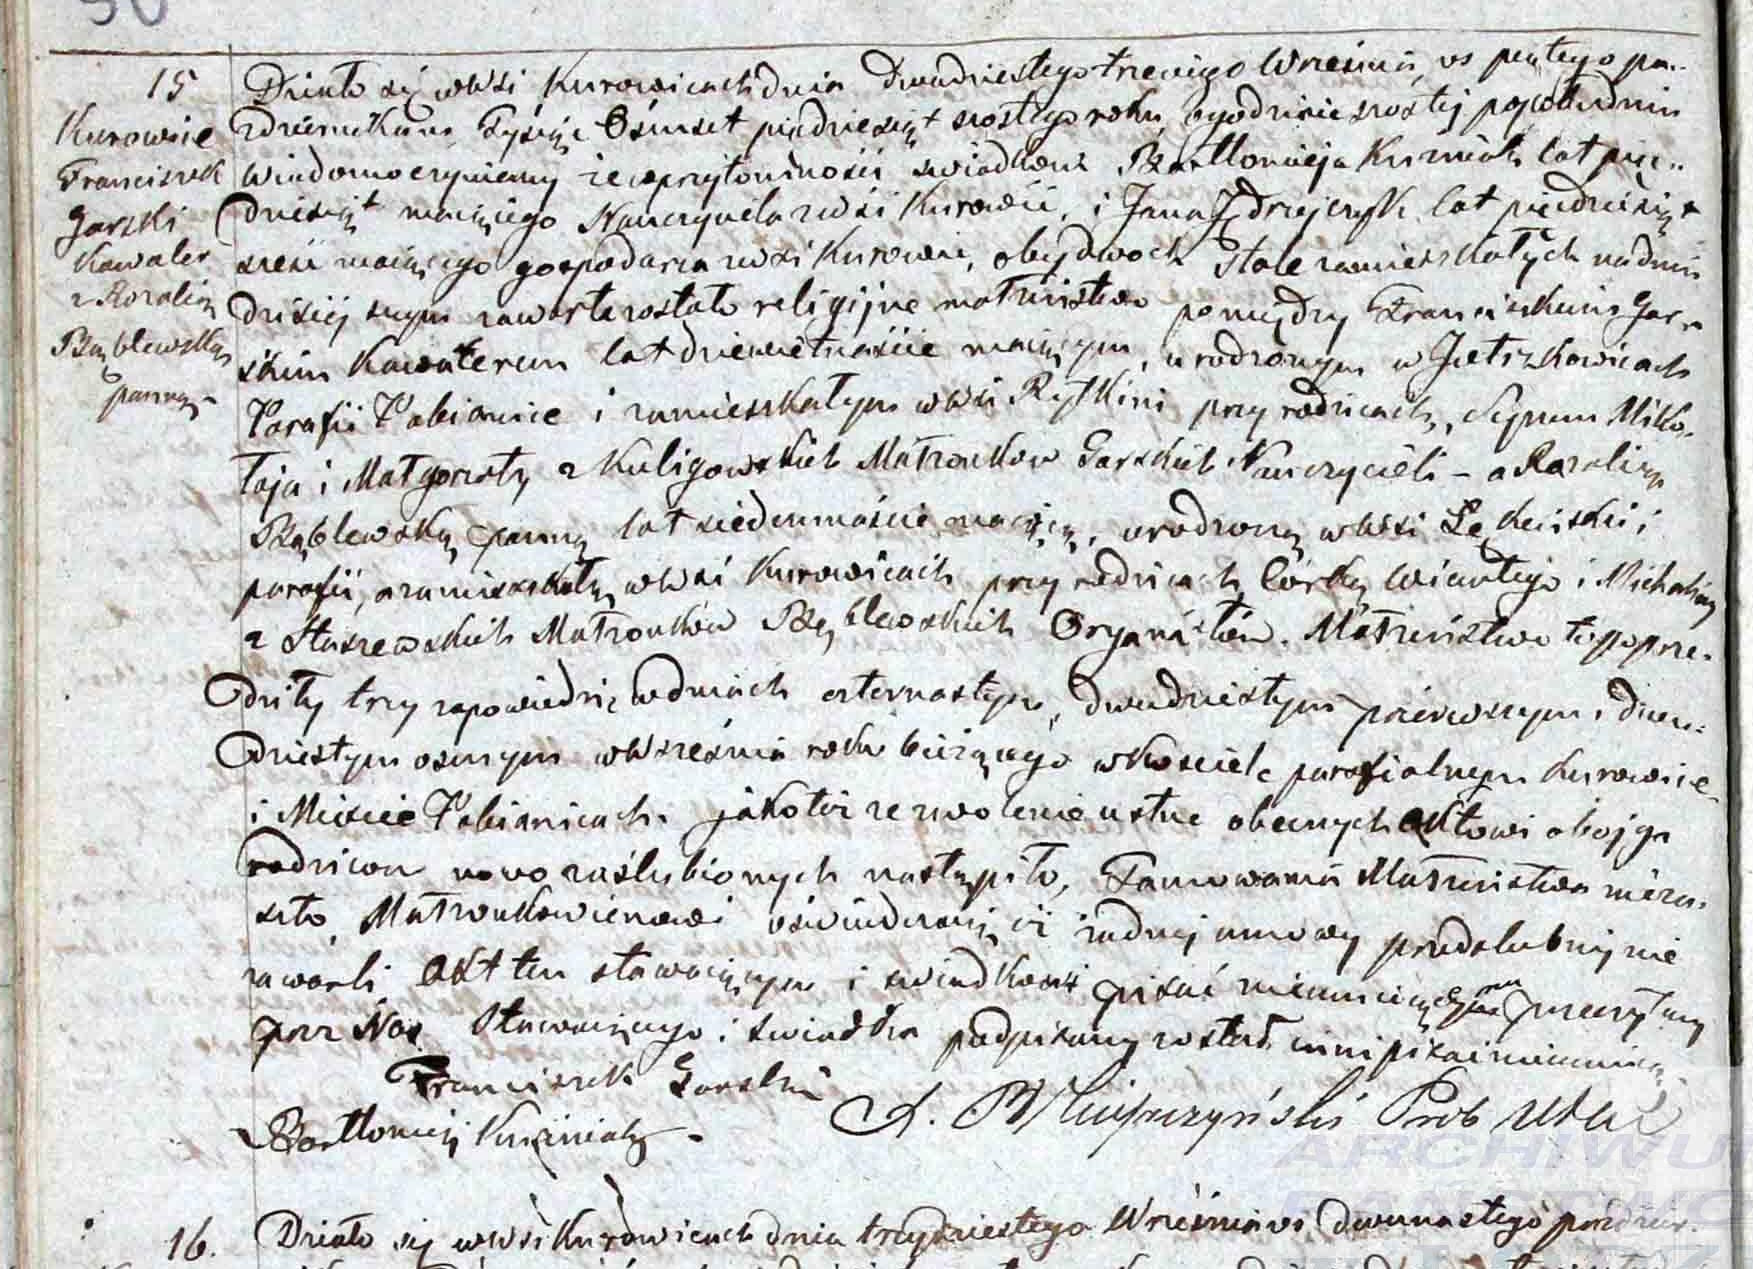 50
15
Kurowice
Franciszek
Garski
Kawaler
z Rozalią
Bąblewską
panną
Działo się wWsi Kurowicach dnia Dwudziestego trzeciego Września, vs piątego pa-
ździernika Tysiąc Ośmset piędziesiąt szostego roku, o godzinie szostej popołudniu
Wiadomo czyniemy że wprzytomności swiadkow Bartłomieja Kuzniak lat pięć-
dziesiąt maiącego Nauczyciela zwsi Kurowic, i Jana Jędrzejczyk lat piędziesiąt
sześć maiącego gospodarza zwsi Kurowic, obydwoch Stale zamieszkałych na dniu
dzisiejszym zawarte zostało religijne małżeństwo pomiędzy Franciszkiem Gar-
skim Kawalerem lat dziewietnaście maiącym, urodzonym w Jutrzkowicach
Parafii Pabianice i zamieszkałym wWsi Rypkini przy rodzicach, Synem Miko-
łaja i Małgorzaty z Kuligowskich Małżonków Garskich Nauczycieli – a Rozalią
Bąblewską panną lat siedmnaście maiącą, urodzoną wWsi Łękińskiei
parafii, a zamieszkałą wWsi Kurowicach przy rodzicach Córką Wicentego i Michaliny
z Staszewskich Małżonków Bąblewskich Organistów. Małżeństwo to poprze-
dziły trzy zapowiedzie wdniach czternastym, dwudziestym pierwszym i dwu-
dziestym osmym wWrześniu roku bieżącego wKosciele parafialnym Kurowice
i Mieście Pabianicach. jakotei zezwolenie ustne obecnych aktowi obojga
rodzicow nowo zaślubionych nastąpiło, Tamowania Małżeństwa nieza-
szło, Małżonkowienowi oświadczają iż żadnej umowy przedslubnej nie
zawarli Akt ten stawaiącym i swiadkom pisać nieumieiącym przeczytany
przez Nas Stawaiącego i Swiadka podpisany został. inni pisać nieumieią.
Franciszek Garski
Bartłomiej Kuzniak
16.
Działo się wWsi Kurowicach dnia trzydziestego Września vs dwunastego paździer-